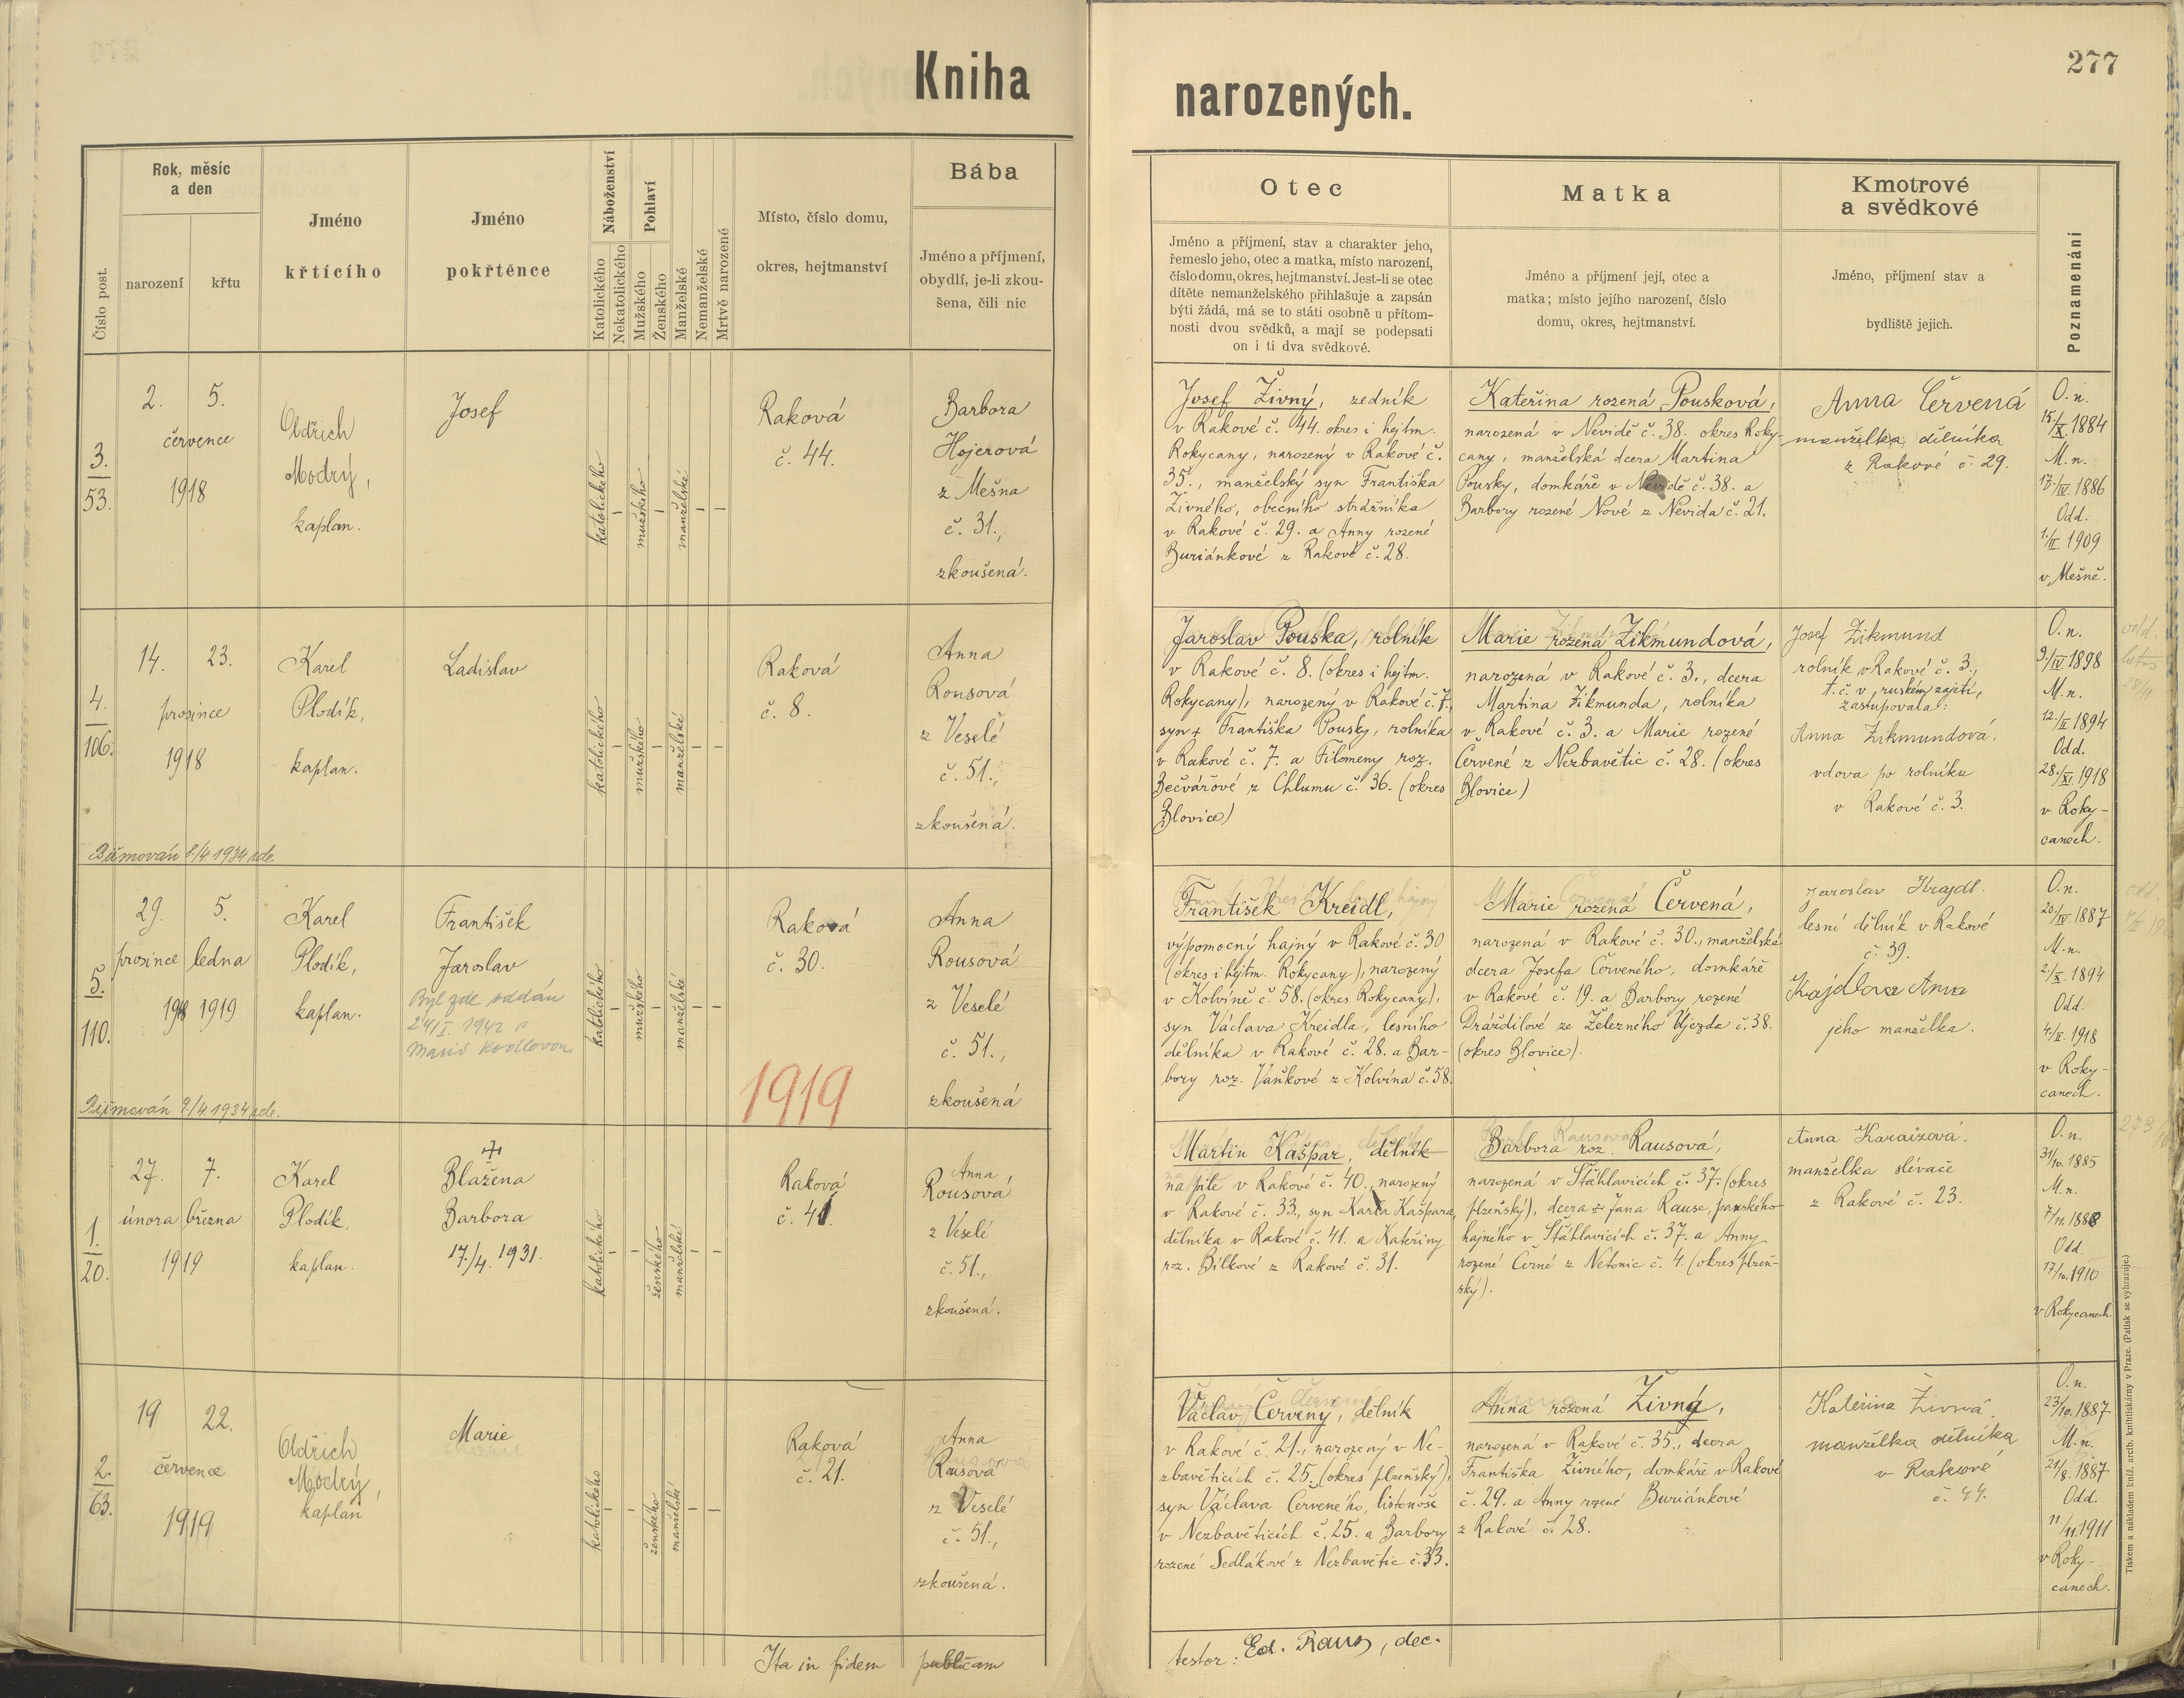 277
Kniha
narozených.
Číslo post.
Rok, měsíc
a den
narození
křtu
Jméno
křtícího
Jméno
pokřtěnce
Náboženství
Katolického
Nekatolického
Pohlaví
Mužského
Ženského
Manželské
Nemanželské
Mrtvě narozené
Místo, číslo domu,
okres, hejtmanství
Bába
Jméno a příjmení,
obydlí, je-li zkou-
šena, čili nic
Otec
Jméno a příjmení, stav a charakter jeho,
řemeslo jeho, otec a matka, místo narození,
číslo domu, okres, hejtmanství. Jest-li se otec
dítěte nemanželského přihlašuje a zapsán
býti žádá, má se to státi osobně u přítom-
nosti dvou svědků, a mají se podepsati
on i ti dva svědkové.
Matka
Jméno a příjmení její, otec a
matka; místo jejího narození, číslo
domu, okres, hejtmanství.
Kmotrové
a svědkové
Jméno, příjmení stav a
bydliště jejich.
Poznamenání
3.
53.
2. 5.
července
1918
Oldřich
Modrý,
kaplan.
Josef
katolického
–
mužského
–
manželské
–
–
Raková
č. 44.
Barbora
Hojerová
z Mešna
č. 31.,
zkoušená.
Josef Živný, zedník
v Rakové č. 44. okres i hejtm.
Rokycany, narozený v Rakové č.
35., manželský syn Františka
Živného, obecního strážníka
v Rakové č. 29. a Anny rozené
Buriánkové z Rakové č. 28.
Kateřina rozená Pousková,
narozená v Nevidě č. 38. okres Roky-
cany, manželská dcera Martina
Pousky, domkáře v Nevidě č. 38. a
Barbory rozené Nové z Nevida č. 21.
Anna Červená
manželka dělníka
z Rakové č. 29.
O. n.
15./X. 1884
M. n.
17./IV. 1886
Odd.
1./II. 1909
v Mešně.
4.
106.
14. 23.
prosince
1918
Karel
Plodík,
kaplan.
Ladislav
katolického
–
mužského
–
manželské
–
–
Raková
č. 8.
Anna
Rousová
z Veselé
č. 51.,
zkoušená.
Biřmován 8/4 1934 zde
Jaroslav Pouska, rolník
v Rakové č. 8. (okres i hejtm.
Rokycany), narozený v Rakové č. 7.,
syn + Františka Pousky, rolníka
v Rakové č. 7. a Filomeny roz.
Bečvářové z Chlumu č. 36. (okres
Blovice)
Marie rozená Zikmundová,
narozená v Rakové č. 3., dcera
Martina Zikmunda, rolníka
v Rakové č. 3. a Marie rozené
Červené z Nezbavětic č. 28. (okres
Blovice)
Josef Zikmund
rolník v Rakové č. 3.,
t. č. v ruském zajetí,
zastupovala:
Anna Zikmundová,
vdova po rolníku
v Rakové č. 3.
O. n.
9./IV. 1898
M. n.
12./II. 1894
Odd.
28./XI. 1918
v Roky-
canech.
5.
110.
29. 5.
prosince ledna
1918 1919
Karel
Plodík,
kaplan.
František
Jaroslav
Byl zde oddán
24/I. 1942 s
katolického
–
mužského
–
manželské
–
–
Raková
č. 30.
1919
Anna
Rousová
z Veselé
č. 51.,
zkoušená
Biřmován 8/4 1934 zde.
František Kreidl,
výpomocný hajný v Rakové č. 30
(okres i hejtm. Rokycany), narozený
v Kolvíně č. 58. (okres Rokycany),
syn Václava Kreidla, lesního
dělníka v Rakové č. 28. a Bar-
bory roz. Vaňkové z Kolvína č. 58.
Marie rozená Červená,
narozená v Rakové č. 30., manželská
dcera Josefa Červeného, domkáře
v Rakové č. 19. a Barbory rozené
Dráždilové ze Železného Újezda č. 38.
(okres Blovice).
Jaroslav Krajdl.
lesní dělník v Rakové
č. 39.
Anna
jeho manželka.
O. n.
20./IV. 1887
M. n.
2/X. 1894
Odd.
4./II. 1918
v Roky-
canech.
1.
20.
27. 7.
února března
1919
Karel
Plodík,
kaplan.
Blažena
Barbora
17./4. 1931.
katolického
–
–
ženského
manželské
–
–
Raková
č. 41.
Anna
Rousová
z Veselé
č. 51.,
zkoušená.
Martin Kašpar, dělník
na pile v Rakové č. 40., narozený
v Rakové č. 33., syn Karla Kašpara,
dělníka v Rakové č. 41. a Kateřiny
roz. Bílkové z Rakové č. 31.
Barbora roz. Rausová,
narozená v Štáhlavicích č. 37. (okres
plzeňský), dcera + Jana Rause, panského
hajného v Štáhlavicích č. 37. a Anny
rozené Černé z Netonic č. 4. (okres plzeň-
ský).
Anna Karaizová.
manželka slévače
z Rakové č. 23.
O. n.
31/10. 1885
M. n.
7/11. 1888
Odd.
17/10. 1910
v Rokycanech.
2.
63.
19 22.
července
1919
Oldřich
Modrý,
kaplan
Marie
katolického
–
–
ženského
manželské
–
–
Raková
č. 21.
Anna
Rausová
z Veselé
č. 51.,
zkoušená.
Václav Červený, dělník
v Rakové č. 21., narozený v Ne-
zbavěticích č. 25. (okres plzeňský),
syn Václava Červeného, listonoše
v Nezbavěticích č. 25. a Barbory
rozené Sedlákové z Nezbavětic č. 33.
Anna rozená Živný,
narozená v Rakové č. 35., dcera
Františka Živného, domkáře v Rakové
č. 29. a Anny rozené Buriánkové
z Rakové č. 28.
Kateřina Živná
manželka dělníka
v Rakové
č. 44.
O. n.
23/10. 1887
M. n.
21/8. 1887
Odd.
11./11. 1911
v Roky-
canech.
Ita in fidem publicam
testor: Ed. Raus, dec.
Tiskem a nákladem kníž. arcib. knihtiskárny v Praze. (Patisk se vyhrazuje.)